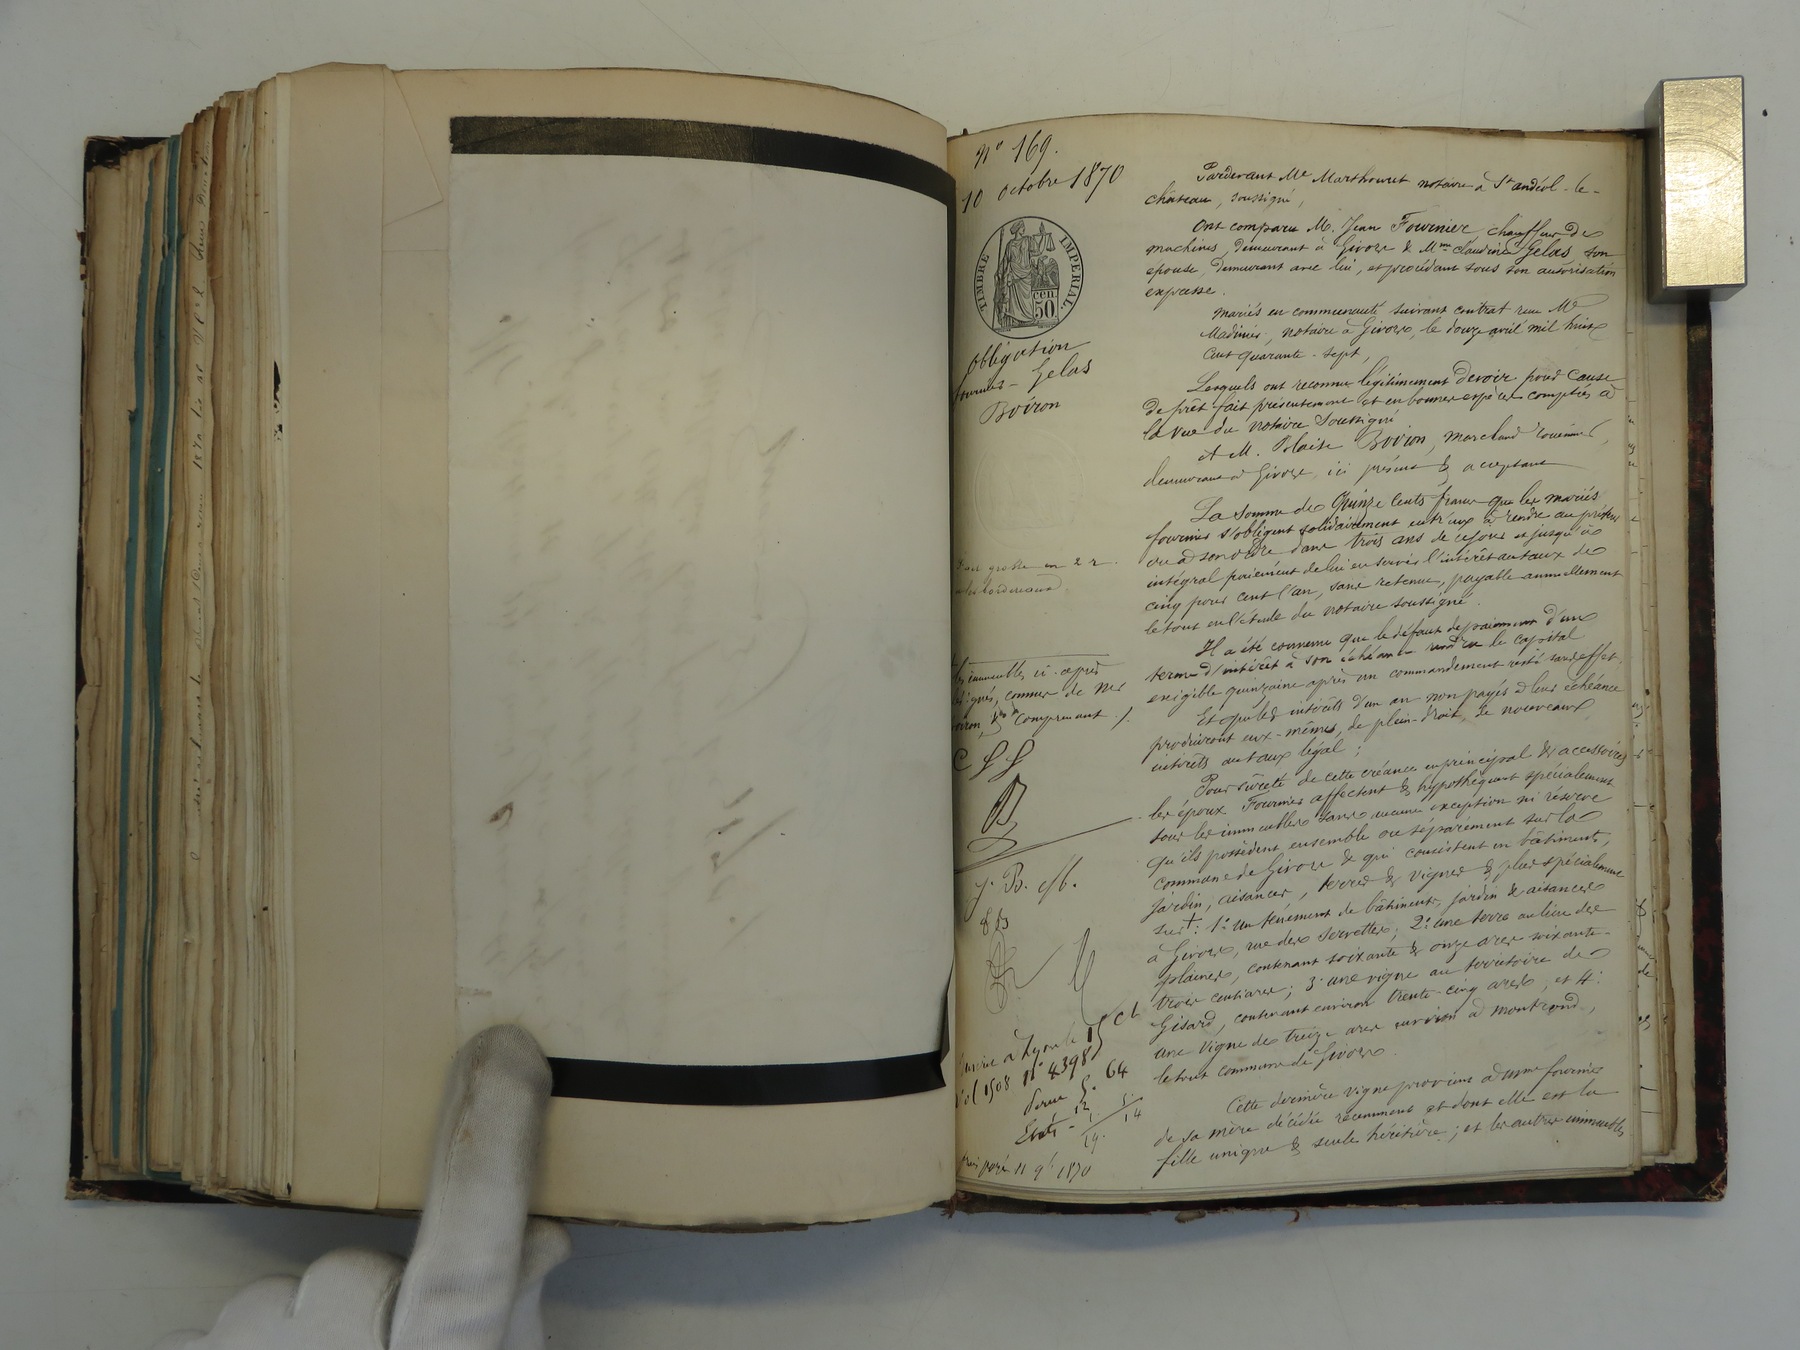 n° 169.
10 octobre 1870
TIMBRE IMPERIAL
50 cen.
Obligation
Gelas
Boiron
grosse en 2 r.
bordereaux
immeubles ci-après
comme de Mr
comprenant ./.
J. B.
à Lyon le 15
Vol 1508 n° 4398
64
14
1870
Pardevant Me Marthouret notaire à St andéol-le-
château, soussigné,
Ont comparu M. Jean Fournier, chauffeur de
machines, demeurant à Givors & Mme Claudine Gelas son
épouse, demeurant avec lui, et procédant sous son autorisation
expresse.
mariés en communauté suivant contrat reçu Me
Madinier, notaire à Givors, le douze avril mil huit
cent quarante-sept,
Lesquels ont reconnu légitimement devoir pour cause
de prêt fait présentement et en bonnes espèces comptées à
la vue du notaire soussigné
et M. Blaise Boiron, marchand
demeurant à Givors, ici présent & acceptant
La somme de Quinze cents francs que les mariés
fournier s'obligent solidairement entr'eux à rendre au prêteur
ou à son ordre dans trois ans de ce jour et jusqu'à
intégral paiement de lui en servir l'intérêt au taux de
cinq pour cent l'an, sans retenue, payable annuellement
le tout en l'étude du notaire soussigné.
Il a été convenu que le défaut de paiement d'un
terme d'intérêt à son échéance rendra le capital
exigible quinzaine après un commandement resté sans effet.
Et que les intérêts d'un an non payés à leur échéance
produiront eux-mêmes, de plein-droit, de nouveaux
intérêts au taux légal ;
Pour sûreté de cette créance en principal & accessoires
les époux Fournier affectent & hypothèquent spécialement
tous les immeubles sans aucune exception ni réserve
qu'ils possèdent ensemble ou séparément sur la
commune de Givors & qui consistent en bâtiments,
jardin, aisances, terres & vignes & plus spécialement
sur + : 1° un tènement de bâtiments, jardin & aisances
à Givors, rue des Servettes ; 2° une terre au lieu des
plaines, contenant soixante & onze ares soixante-
trois centiares ; 3° une vigne au territoire de
Gisard, contenant environ trente-cinq ares, et 4°
une vigne de treize ares environ à montrond,
le tout commune de Givors.
Cette dernière vigne provient à Mme fournier
de sa mère décédée récemment et dont elle est la
fille unique & seule héritière ; et les autres immeubles